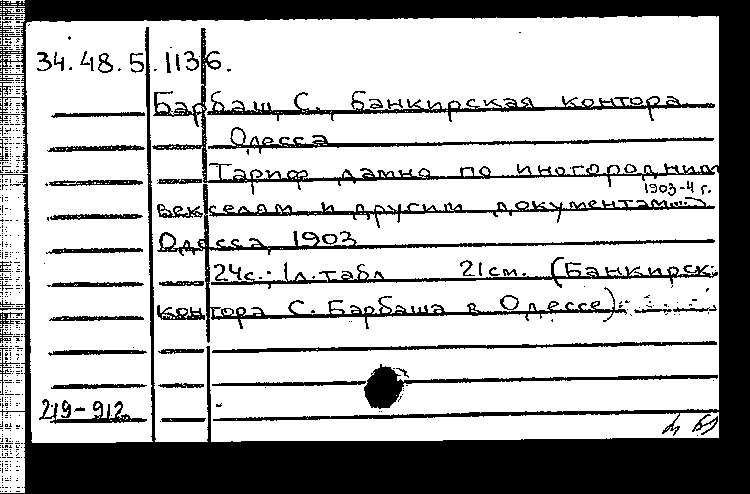 34.48.5.1136.
Барбаш, С., банкирская контора
Одесса
Тариф дамно по иногородним
1903-4 г.
векселям и другим документам
Одесса, 1903
24с.; 1л.табл 21см. (Банкирск.
контора С. Барбаша в Одессе)
219-912